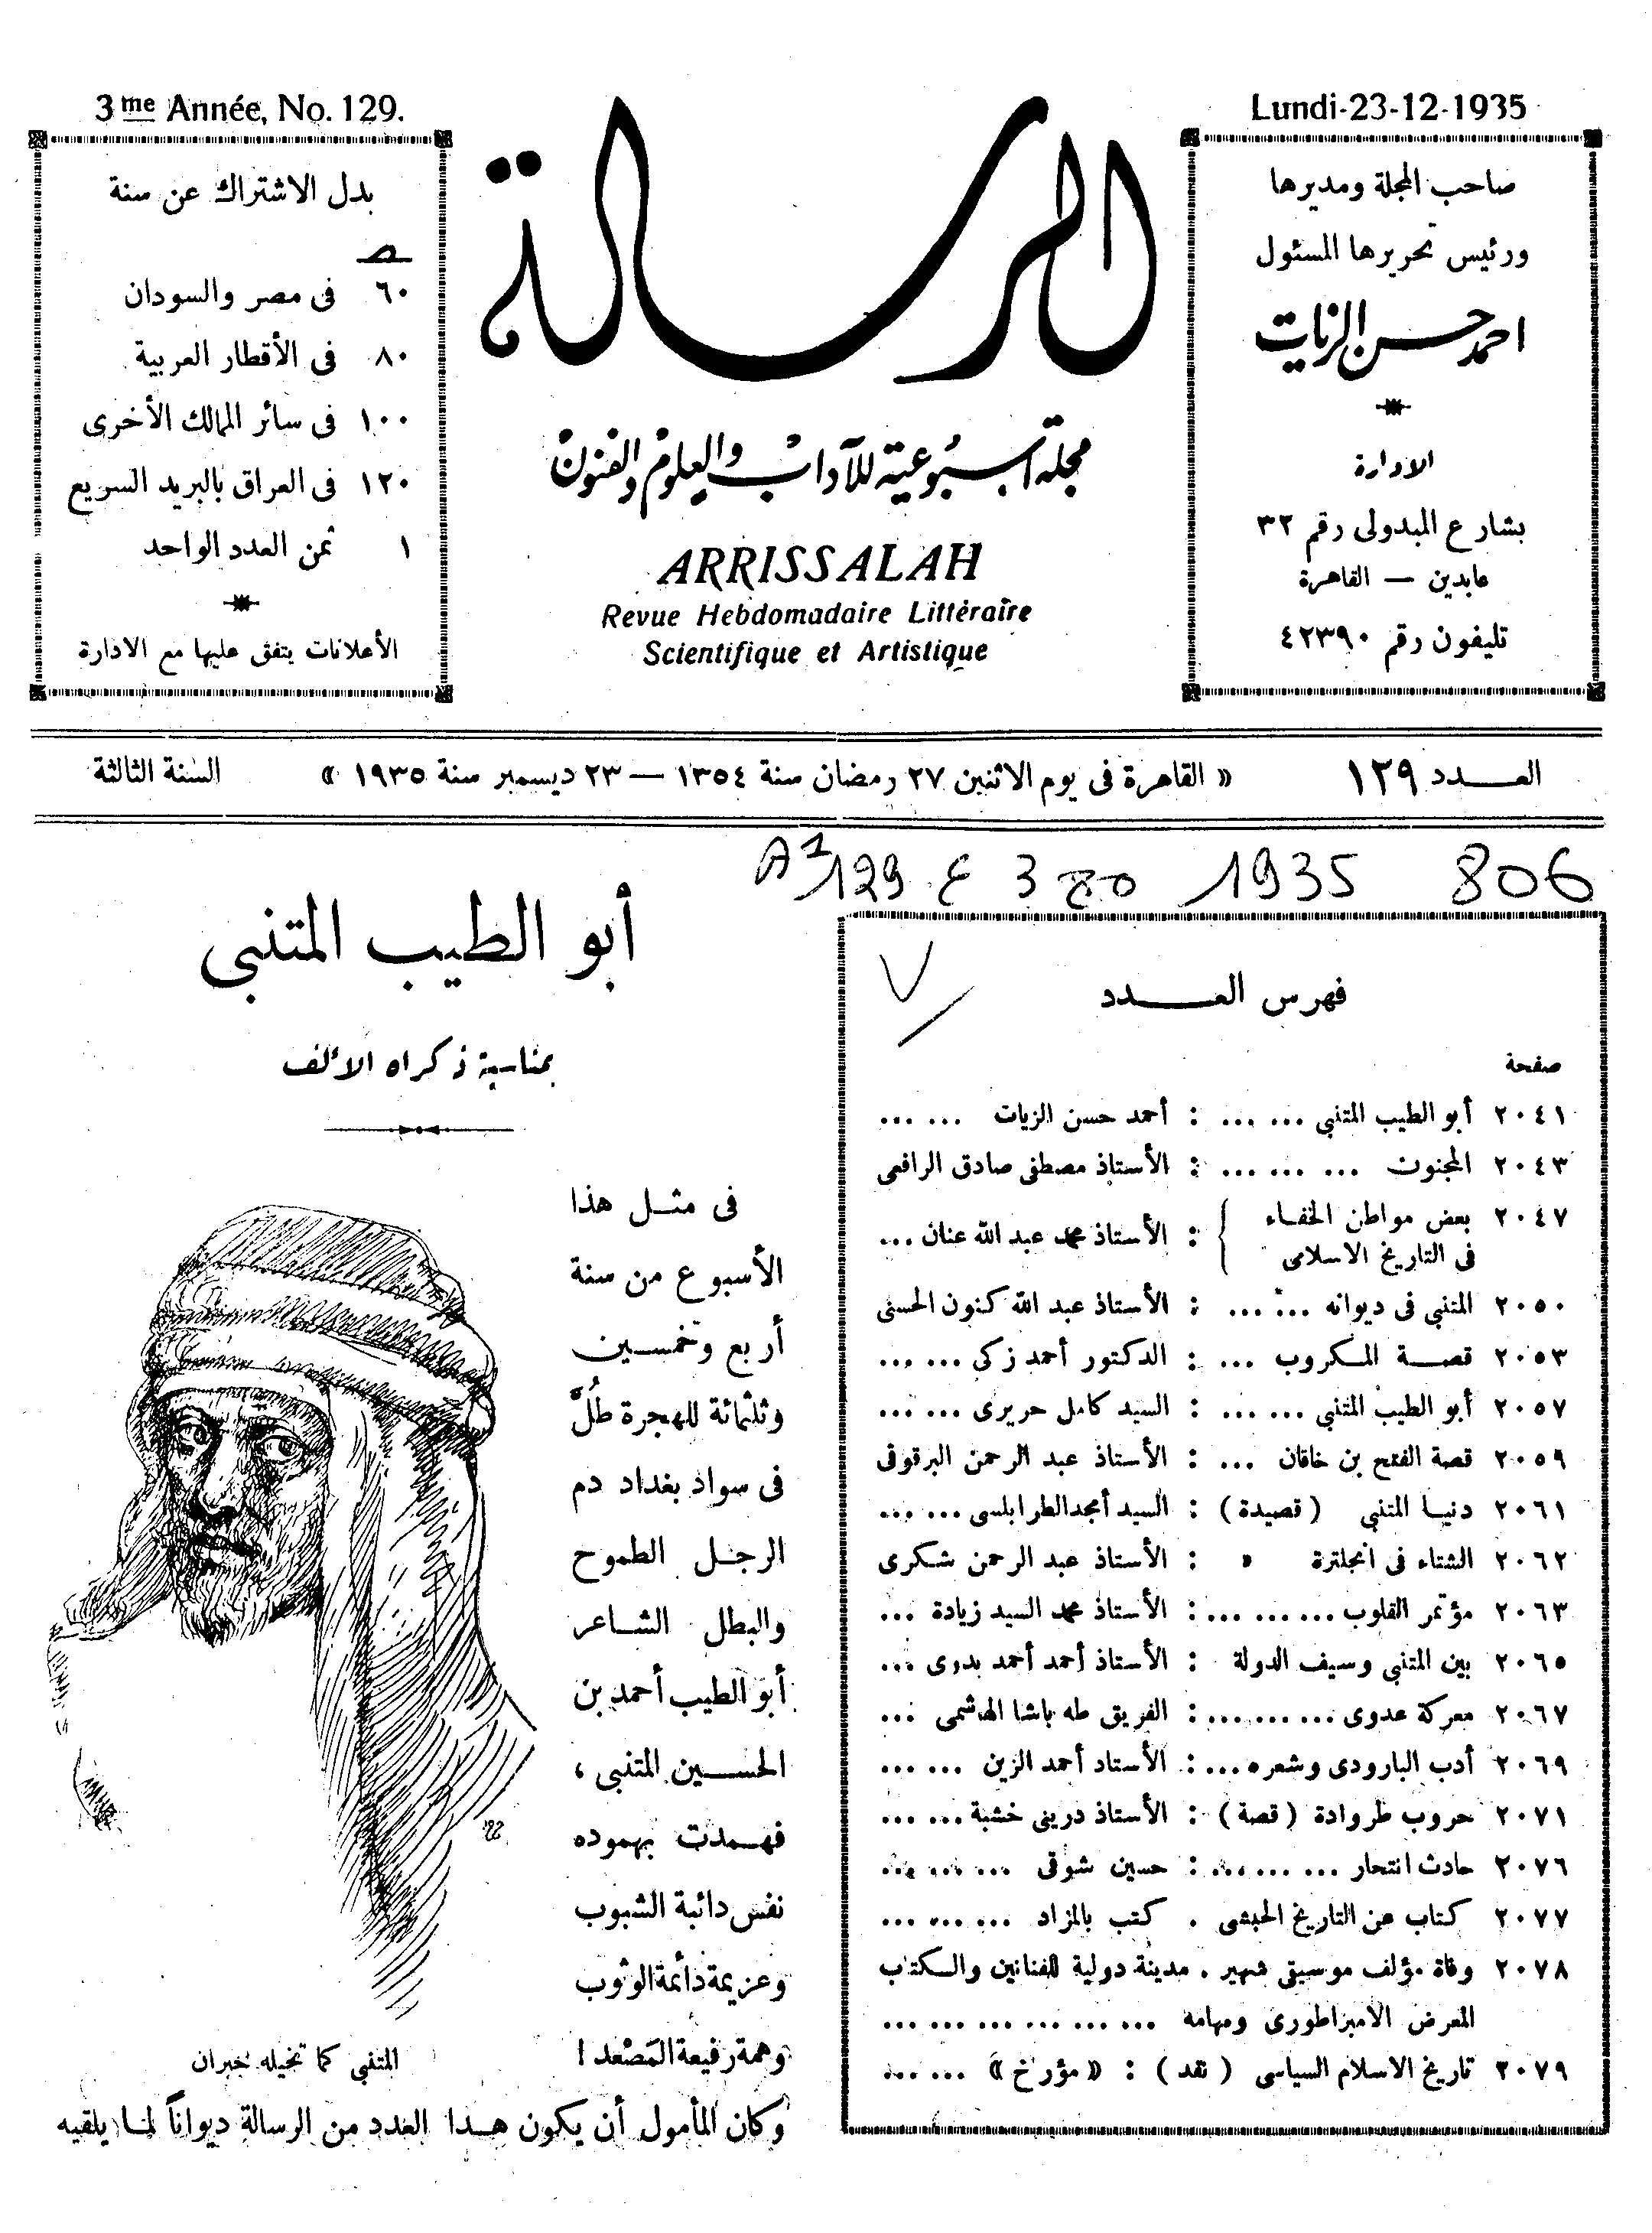 3me Année, No. 129.
Lundi-23-12-1935
صاحب المجلة ومديرها
ورئيس تحريرها المسئول
احمد حسن الزيات
الادارة
بشارع المبدولى رقم ٣٢
عابدين — القاهرة
تليفون رقم ٤٢٣٩٠
الرسالة
مجلة أسبوعية للآداب والعلوم والفنون
ARRISSALAH
Revue Hebdomadaire Littéraire
Scientifique et Artistique
بدل الاشتراك عن سنة
٦٠ فى مصر والسودان
٨٠ فى الأقطار العربية
١٠٠ فى سائر الممالك الأخرى
١٢٠ فى العراق بالبريد السريع
١ ثمن العدد الواحد
الأعلانات يتفق عليها مع الادارة
العــدد ١٢٩ « القاهرة فى يوم الاثنين ٢٧ رمضان سنة ١٣٥٤ — ٢٣ ديسمبر سنة ١٩٣٥ » السنة الثالثة
129 ع 3 1935 806
فهرس العــدد
صفحة
٢٠٤١ أبو الطيب المتنبى ... ... : أحمد حسن الزيات ... ...
٢٠٤٣ المجنون ... ... ... : الأستاذ مصطفى صادق الرافعى
٢٠٤٧ بعض مواطن الخفاء فى التاريخ الاسلامى } : الأستاذ محمد عبد الله عنان ...
٢٠٥٠ المتنبى فى ديوانه ... ... : الأستاذ عبد الله كنون الحسنى
٢٠٥٣ قصة المكروب ... : الدكتور أحمد زكى ... ...
٢٠٥٧ أبو الطيب المتنبى ... ... : السيد كامل حريرى ... ...
٢٠٥٩ قصة الفتح بن خاقان ... : الأستاذ عبد الرحمن البرقوقى
٢٠٦١ دنيا المتنبى (قصيدة) : السيد أمجد الطرابلسى ... ...
٢٠٦٢ الشتاء فى انجلترة » : الأستاذ عبد الرحمن شكرى
٢٠٦٣ مؤتمر القلوب ... ... ... : الأستاذ محمد السيد زيادة ...
٢٠٦٥ بين المتنبى وسيف الدولة : الأستاذ أحمد أحمد بدوى ...
٢٠٦٧ معركة عدوى ... ... ... : الفريق طه باشا الهاشمى ...
٢٠٦٩ أدب البارودى وشعره ... : الأستاذ أحمد الزين ... ...
٢٠٧١ حروب طروادة (قصة) : الأستاذ درينى خشبة ... ...
٢٠٧٦ حادث انتحار ... ... ... : حسين شوقى ... ... ...
٢٠٧٧ كتاب عن التاريخ الحبشى . كتب بالمزاد ... ... ...
٢٠٧٨ وفاة مؤلف موسيقى شهير . مدينة دولية للفنانين والكتاب
المعرض الامبراطورى ومهامه ... ... ... ... ... ...
٢٠٧٩ تاريخ الاسلام السياسى (نقد) : « مؤرخ » ... ...
أبو الطيب المتنبى
بمناسبة ذكراه الألف
فى مثــل هذا
الأسبوع من سنة
أربع وخمسين
وثلثمائة للهجرة طُلَّ
فى سواد بغداد دم
الرجل الطموح
والبطل الشاعر
أبو الطيب أحمد بن
الحسين المتنبى ،
فهمدت بهموده
نفس دائبة الشبوب
وعزيمة دائمة الوثوب
وهمة رفيعة المَصْعد !
المتنبى كما تخيله جبران
وكان المأمول أن يكون هــذا العدد من الرسالة ديواناً لما يلقيه